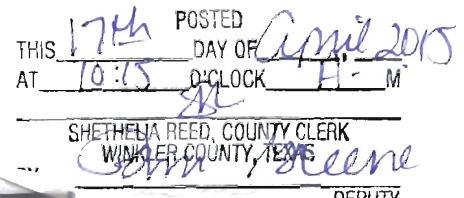 POSTED
THIS 17th DAY OF April, 2015
AT 10:15 O'CLOCK A. M
SHETHELIA REED, COUNTY CLERK
WINKLER COUNTY, TEXAS
BY Greene
DEPUTY